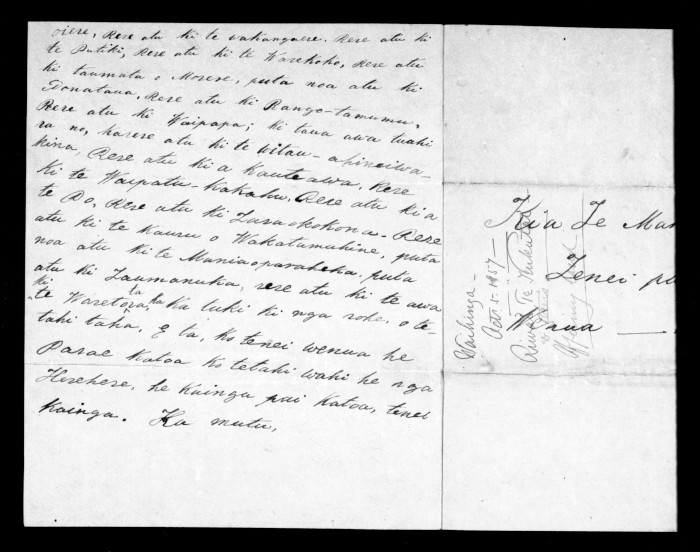 oiere, Rere atu ki te wakanguere. Rere atu ki
te Putiki, Rere atu ki te Warekoko, Rere atu
ki taumata o Morere, puta noa atu ki
Tonataua, Rere atu ki Rango-tamumu,
Rere atu ki Waipapa; ki taua awa tuahi
ra no, harere atu ki te
kina, Rere atu ki a Kauteawa, Rere
ki te Waipatu-Kakahu, Rere atu ki a
te Po, Rere atu ki Taraokokona-Rere
atu ki te Kauru o Wakatamuhine, puta
noa atu ki te Maniaoparaheka, puta
atu ki Taumanuka, rere atu ki te awa
ki
te Waretara, ka tuki ki nga rohe, o te-
tahi taha, E ta, ko tenei wenua he
Parae katoa ko tetahi wahi he nga
Herehere, he kainga pai katoa, tenei
kainga. Ka mutu,
Kia Te Ma
Tenei pu
Waihinga-
Oct 5. 1857